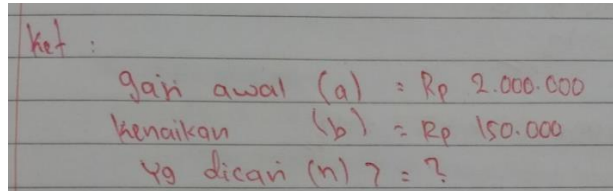 Ket :
gaji awal (a) = Rp 2.000.000
kenaikan (b) = Rp 150.000
yg dicari (n) ? = ?